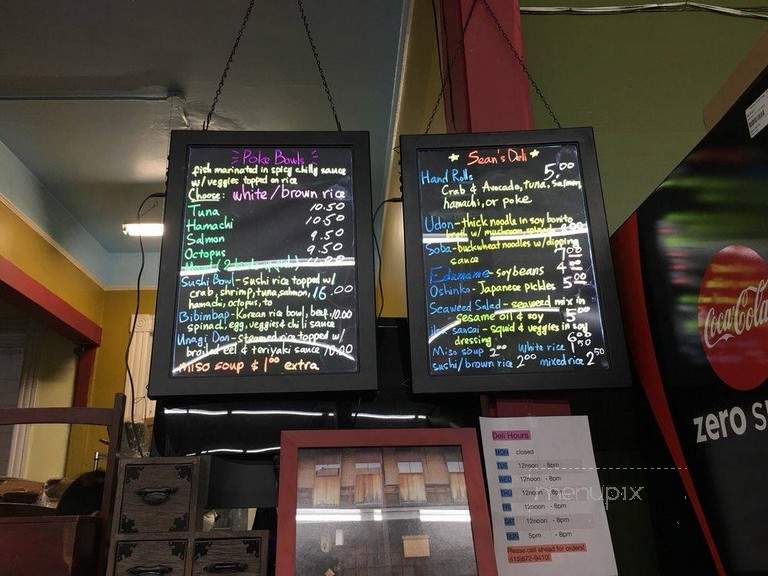 Poke Bowls
fish marinated in spicy chilly sauce
w/ veggies topped on rice
Choose: white/brown rice
Tuna 10.50
Hamachi 10.50
Salmon 9.50
Octopus 9.50
Sushi Bowl - sushi rice topped w/
crab, shrimp, tuna, salmon, 16.00
hamachi, octopus, to
Bibimbap - Korean rice bowl, beef, 10.00
spinach, egg, veggies & chili sauce
Unagi Don - steamed rice topped w/
broiled eel & teriyaki sauce 10.00
miso soup $1.00 extra
Sean's Deli
Hand Rolls 5.00
Crab & Avocado, tuna, salmon,
hamachi, or poke
Udon - thick noodle in soy bonito
broth w/
Soba - buckwheat noodles w/ dipping
sauce 7.00
Edamame - soybeans 4.00
Oshinko - Japanese pickles 5.00
Seaweed Salad - seaweed mix in
sesame oil & soy 5.00
sansai - squid & veggies in soy
dressing 6.00
Miso soup 2.00 White rice 1.50
sushi/brown rice 2.00 mixed rice 2.50
Deli Hours
MON closed
TUE 12noon - 8pm
WED 12noon - 8pm
THU 12noon - 8pm
FRI 12noon - 8pm
SAT 12noon - 8pm
SUN 5pm - 8pm
Please call ahead for orders!
(415)672-9410
menupix
Coca-Cola
zero